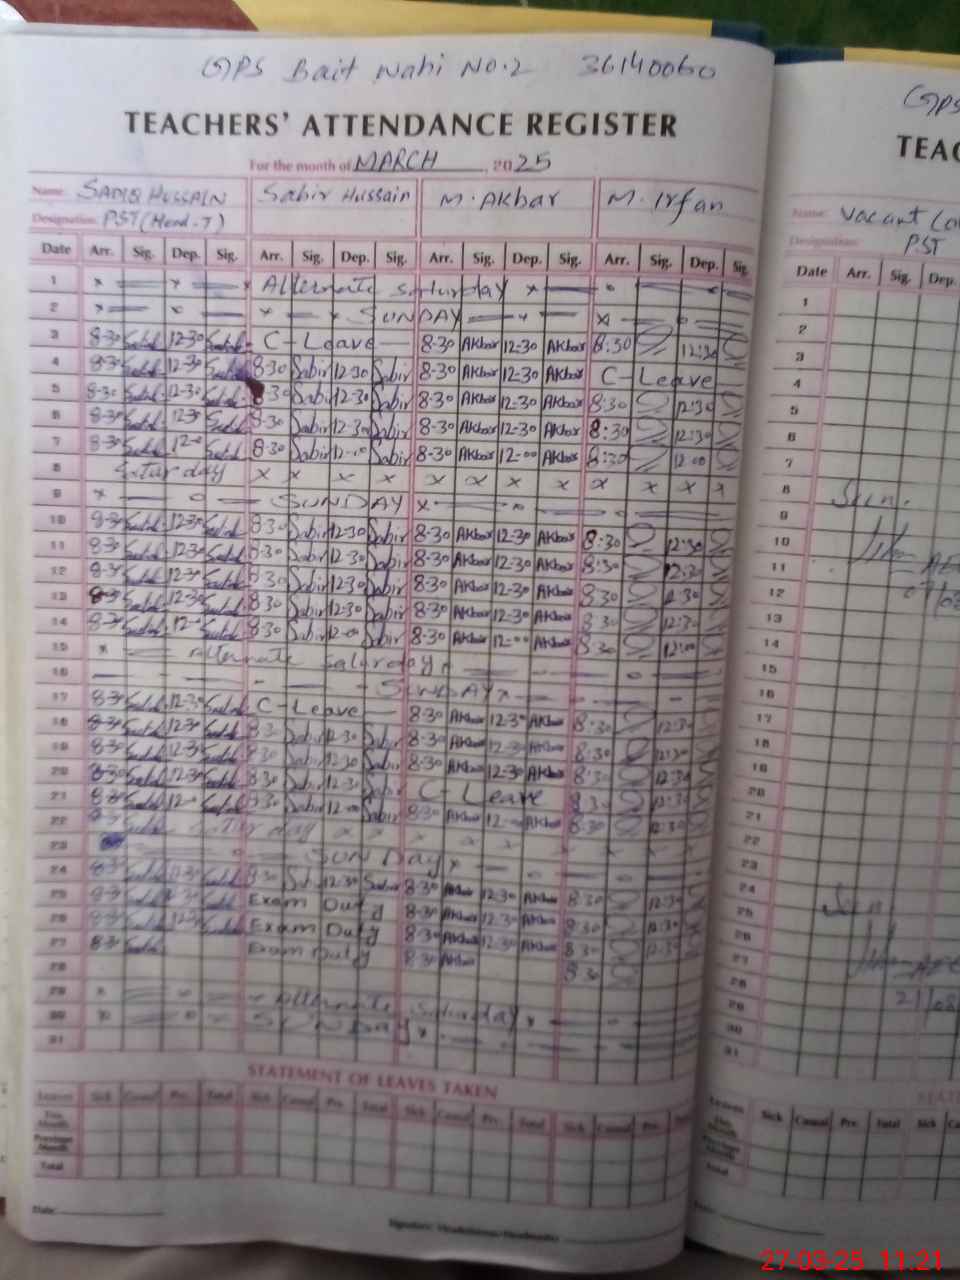 GPS Bait Nabi NO.2 36140060
TEACHERS' ATTENDANCE REGISTER
For the month of MARCH, 2025
Name: SADIQ HUSSAIN Sabir Hussain M. Akbar M. Irfan
Designation: PST (Head-T)
Date Arr. Sig. Dep. Sig. Arr. Sig. Dep. Sig. Arr. Sig. Dep. Sig. Arr. Sig. Dep. Sig.
1 x x Alternate Saturday x
2 x x x x SUNDAY x
3 8-30 Sadiq 12-30 Sadiq C-Leave 8-30 AKbar 12-30 AKbar 8:30 12:30
4 8-30 Sadiq 12-30 Sadiq 8-30 Sabir 12-30 Sabir 8-30 AKbar 12-30 AKbar C-Leave
5 8-30 Sadiq 12-30 Sadiq 8-30 Sabir 12-30 Sabir 8-30 AKbar 12-30 AKbar 8:30 12:30
6 8-30 Sadiq 12-30 Sadiq 8-30 Sabir 12-30 Sabir 8-30 AKbar 12-30 AKbar 8:30 12:30
7 8-30 Sadiq 12-00 Sadiq 8-30 Sabir 12-00 Sabir 8-30 AKbar 12-00 AKbar 8:30 12:00
8 Saturday x x x x x x x x x x x x
9 x SUNDAY x
10 8-30 Sadiq 12-30 Sadiq 8-30 Sabir 12-30 Sabir 8-30 AKbar 12-30 AKbar 8:30 12:30
11 8-30 Sadiq 12-30 Sadiq 8-30 Sabir 12-30 Sabir 8-30 AKbar 12-30 AKbar 8:30 12:30
12 8-30 Sadiq 12-30 Sadiq 8-30 Sabir 12-30 Sabir 8-30 AKbar 12-30 AKbar 8:30 12:30
13 8-30 Sadiq 12-30 Sadiq 8-30 Sabir 12-30 Sabir 8-30 AKbar 12-30 AKbar 8:30 12:30
14 8-30 Sadiq 12-00 Sadiq 8-30 Sabir 12-00 Sabir 8-30 AKbar 12-00 AKbar 8:30 12:00
15 x Alternate Saturday
16 SUNDAY x
17 8-30 Sadiq 12-30 Sadiq C-Leave 8-30 AKbar 12-30 AKbar 8:30 12:30
18 8-30 Sadiq 12-30 Sadiq 8-30 Sabir 12-30 Sabir 8-30 AKbar 12-30 AKbar 8:30 12:30
19 8-30 Sadiq 12-30 Sadiq 8-30 Sabir 12-30 Sabir 8-30 AKbar 12-30 AKbar 8:30 12:30
20 8-30 Sadiq 12-30 Sadiq 8-30 Sabir 12-30 Sabir C-Leave 8:30 12:30
21 8-30 Sadiq 12-00 Sadiq 8-30 Sabir 12-00 Sabir 8-30 AKbar 12-00 AKbar 8:30 12:30
22 Saturday x x x x
23 SUNDAY x
24 8-30 Sadiq 12-30 Sadiq 8-30 Sabir 12-30 Sabir 8-30 AKbar 12-30 AKbar 8:30 12:30
25 8-30 Sadiq 12-30 Sadiq Exam Duty 8-30 AKbar 12-30 AKbar 8:30 12:30
26 8-30 Sadiq 12-30 Sadiq Exam Duty 8-30 AKbar 12-30 AKbar 8:30 12:30
27 8-30 Sadiq Exam Duty 8-30 AKbar 8:30
28
29 x Alternate Saturday x
30 x SUNDAY x
31
STATEMENT OF LEAVES TAKEN
Leaves Sick Casual Prv. Total Sick Casual Prv. Total Sick Casual Prv. Total Sick Casual Prv. Total
This Month
Previous Month
Total
Date:
Signature Headmistress/Headmaster
GPS
TEAC
Name: Vacant
Designation: PST
Date Arr. Sig. Dep.
1
2
3
4
5
6
7
8
9
10
11
12
13
14
15
16
17
18
19
20
21
22
23
24
25
26
27
28
29
30
31
STAT
Leaves Sick Casual Prv. Total Sick
This Month
Previous Month
Total
27-03-25 11:21